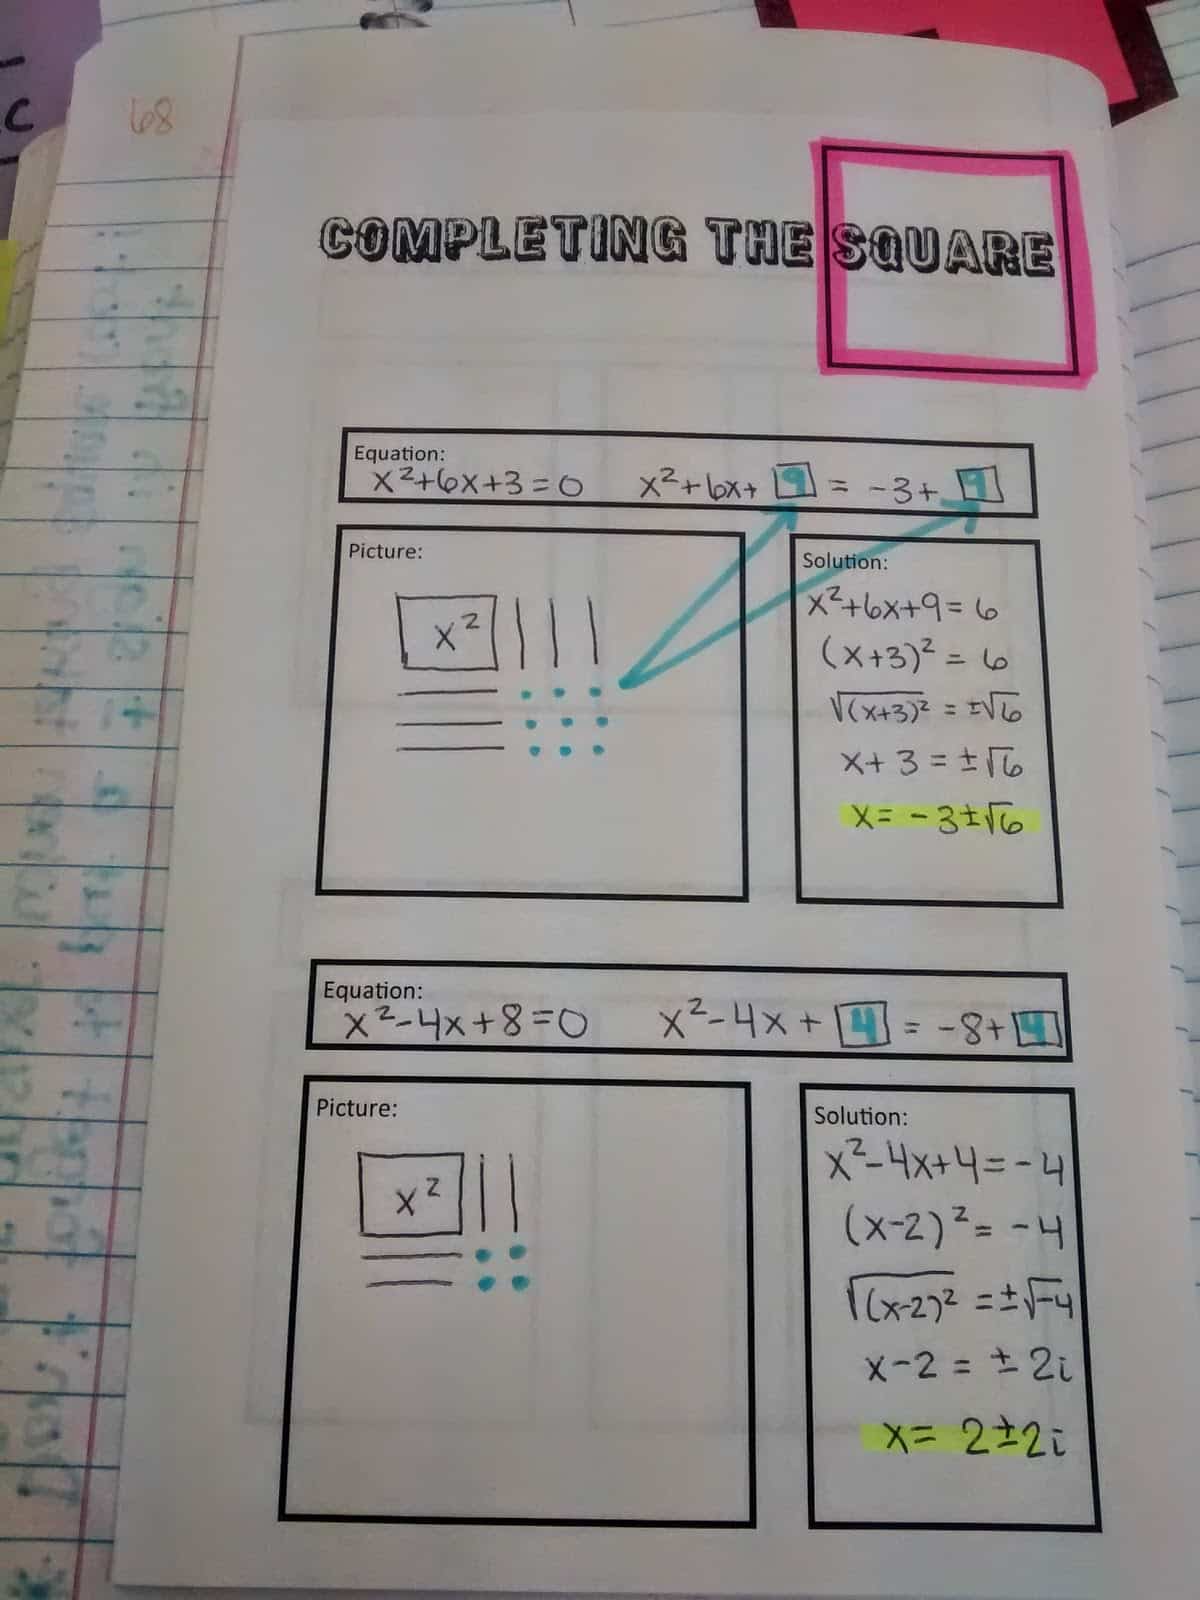 68
COMPLETING THE SQUARE
Equation:
x²+6x+3=0 x²+6x+ 9 = -3+ 9
Picture:
x²
Solution:
x²+6x+9=6
(x+3)² = 6
√(x+3)² = ±√6
x+3 = ±√6
x= -3±√6
Equation:
x²-4x+8=0 x²-4x+ 4 = -8+ 4
Picture:
x²
Solution:
x²-4x+4=-4
(x-2)² = -4
√(x-2)² = ±√-4
x-2 = ±2i
x= 2±2i